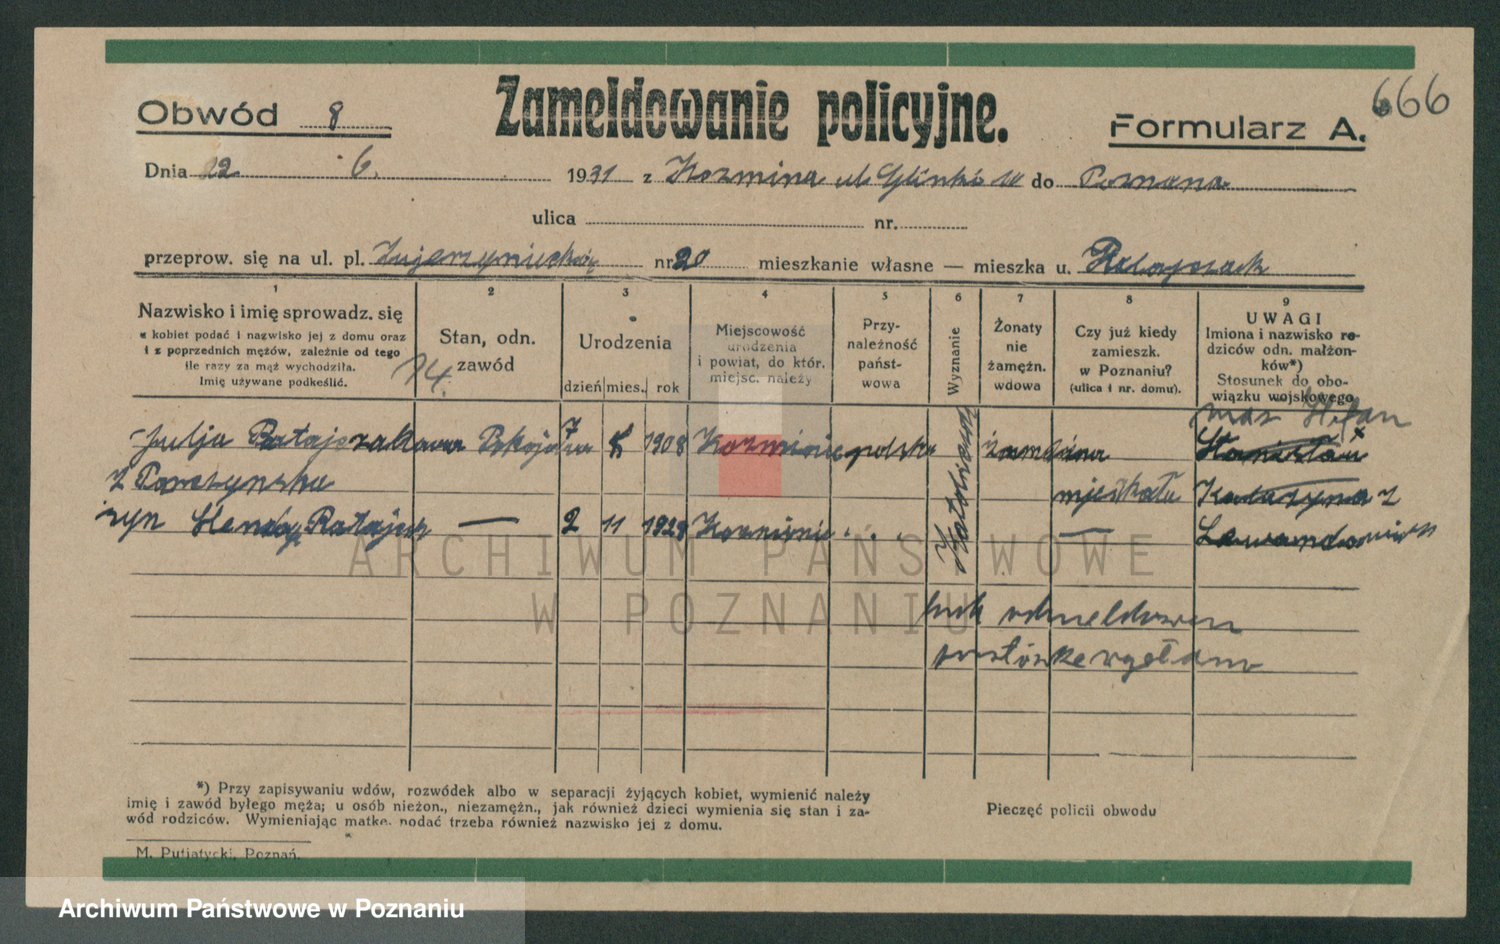 666
Obwód 8
Zameldowanie policyjne.
Formularz A.
Dnia 12. 6. 1931 z Kozmina ul Glinki do Poznana
ulica nr.
przeprow. się na ul. pl. nr 20 mieszkanie własne — mieszka u. Ratajczak
1 2 3 4 5 6 7 8 9
Nazwisko i imię sprowadz. się
u kobiet podać i nazwisko jej z domu oraz
i z poprzednich mężów, zależnie od tego
ile razy za mąż wychodziła.
Imię używane podkeślić.
Stan, odn.
zawód
14.
Urodzenia
dzień mies. rok
Miejscowość
urodzenia
i powiat, do któr.
miejsc. należy
Przy-
należność
państ-
wowa
Wyznanie
Żonaty
nie
zamężn.
wdowa
Czy już kiedy
zamieszk.
w Poznaniu?
(ulica i nr. domu).
UWAGI
Imiona i nazwisko ro-
dziców odn. małżon-
ków*)
Stosunek do obo-
wiązku wojskowego
Julja Ratajczakowa 7 1908 Kozminie polska
z Porczynska
syn Ratajczak — 2 11 1928 Kozminie
mąż Stefan
Stanisław
mieszkała Katarzyna z
—
brak odmeldowan
*) Przy zapisywaniu wdów, rozwódek albo w separacji żyjących kobiet, wymienić należy
imię i zawód byłego męża; u osób nieżon., niezamężn., jak również dzieci wymienia się stan i za-
wód rodziców. Wymieniając matkę, podać trzeba również nazwisko jej z domu.
Pieczęć policii obwodu
M. Putiatycki, Poznań.
ARCHIWUM PAŃSTWOWE
W POZNANIU
Archiwum Państwowe w Poznaniu